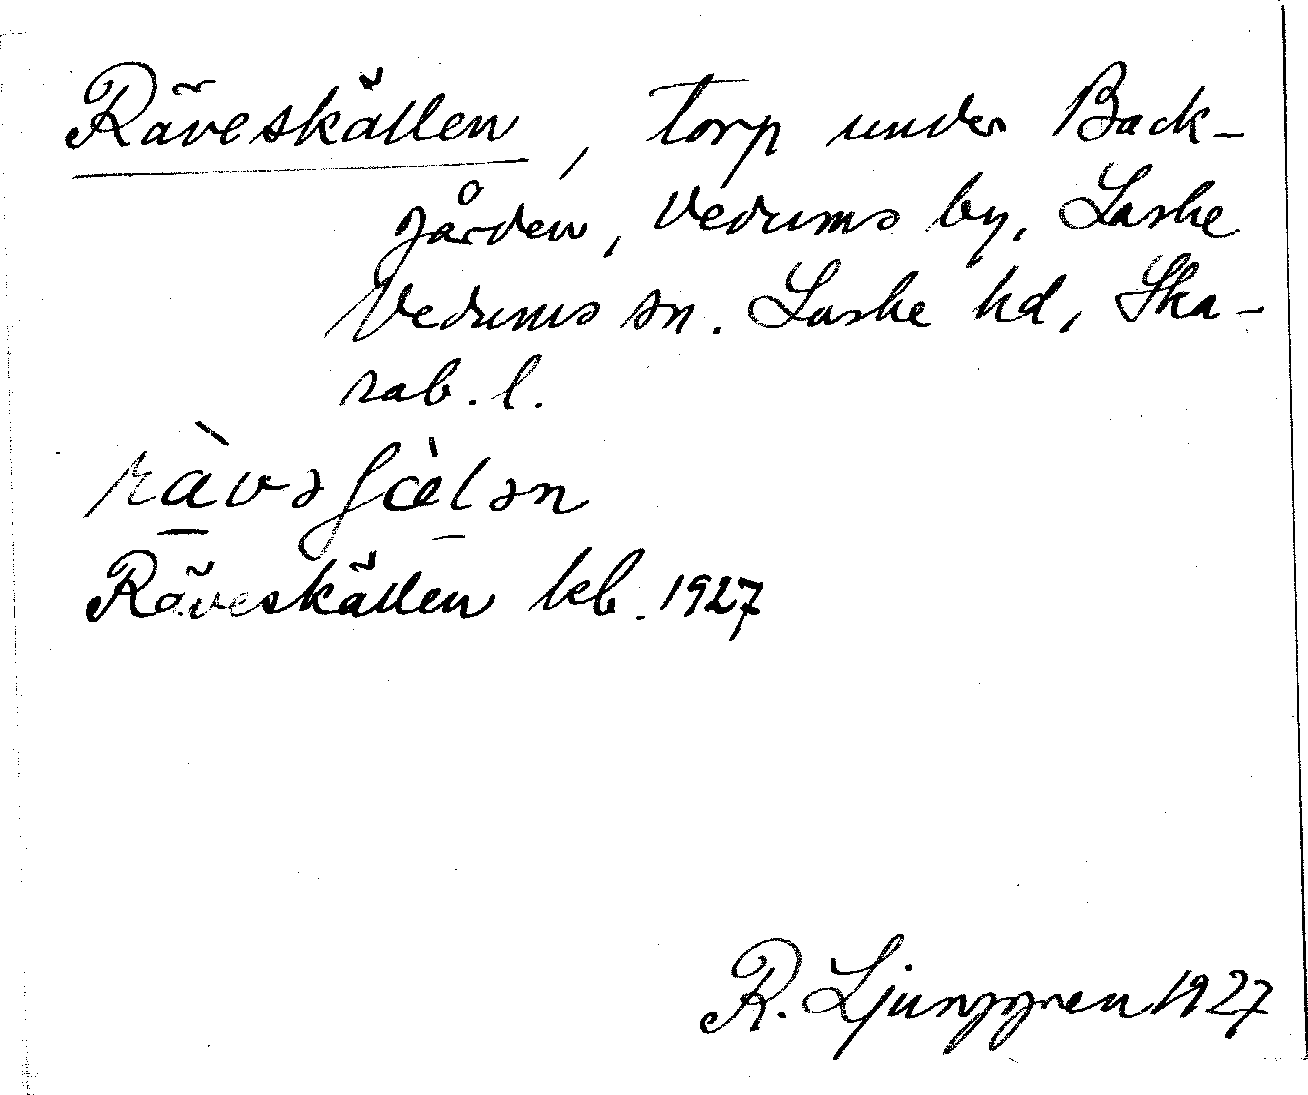 Räveskällen, torp under Back-
gården, Vedums by, Laske
Vedums sn. Laske hd, Ska-
rab. l.
Räveskällen kb. 1927
R. Ljunggren 1927